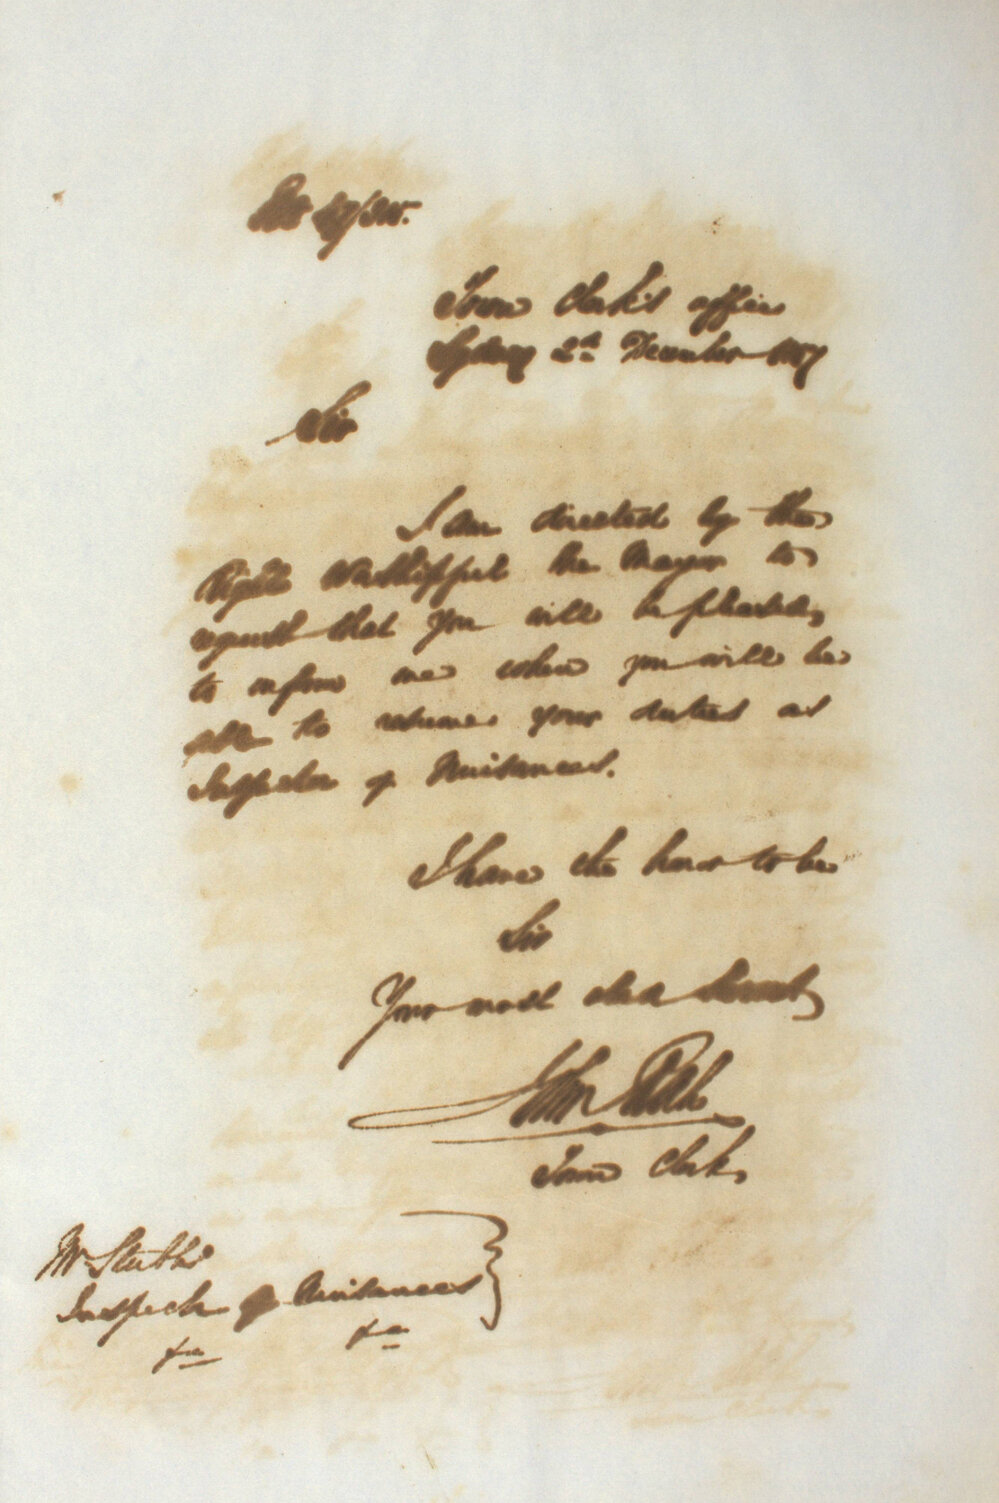 Town Clerk's office
Sydney 2d December 1857
Sir
I am directed by the
Right Worshipful the Mayor to
request that you will be pleased,
to inform me when you will be
able to resume your duties as
Inspector of Nuisances.
I have the honor to be
Sir
Your most obed Servant
Town Clerk,
Mr
Inspector of Nuisances